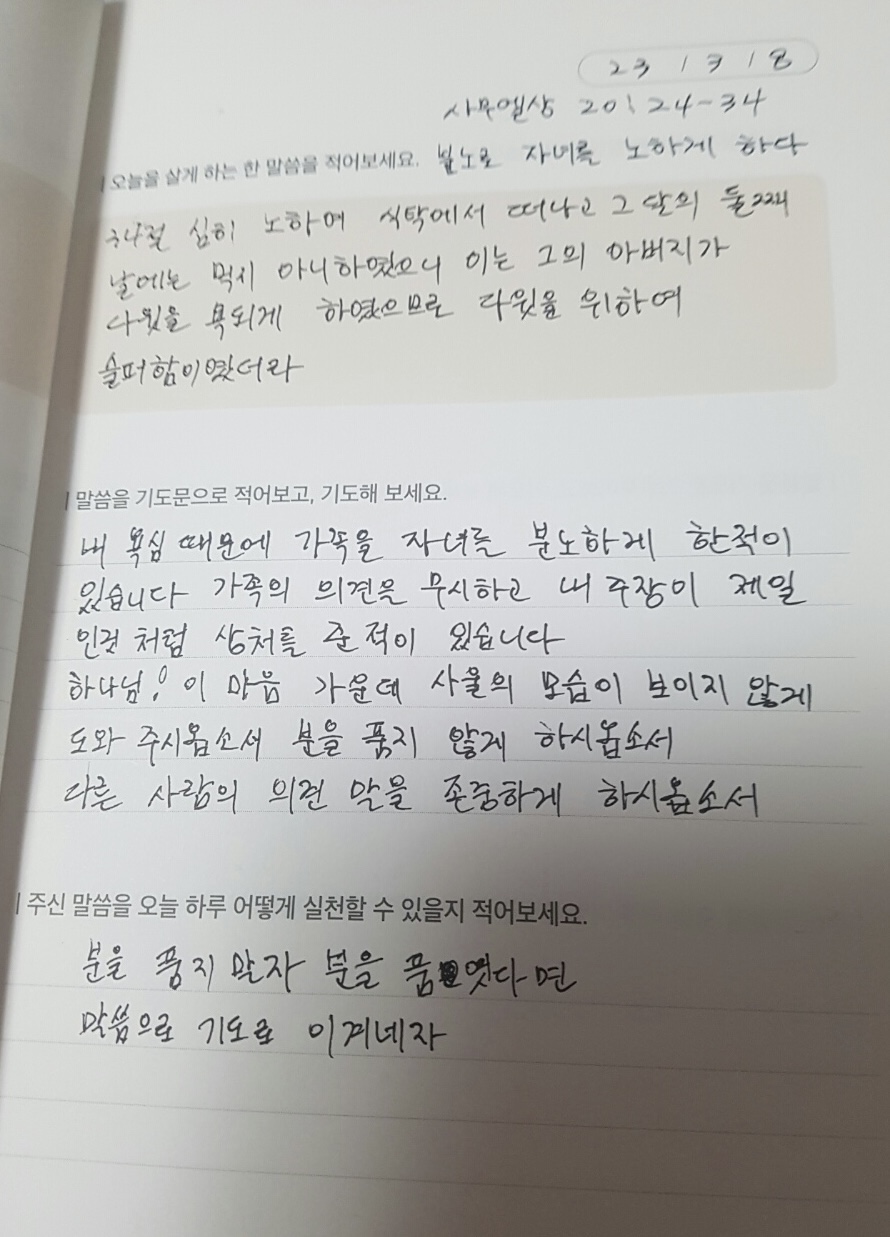 23 / 3 / 8
사무엘상 20:24-34
오늘을 살게 하는 한 말씀을 적어보세요. 분노로 자녀를 노하게 하다
34절 심히 노하여 식탁에서 떠나고 그 달의 둘째
날에는 먹지 아니하였으니 이는 그의 아버지가
다윗을 욕되게 하였으므로 다윗을 위하여
슬퍼함이였더라
말씀을 기도문으로 적어보고, 기도해 보세요.
내 욕심 때문에 가족을 자녀를 분노하게 한적이
있습니다 가족의 의견을 무시하고 내 주장이 제일
인것 처럼 상처를 준적이 있습니다
하나님! 이 마음 가운데 사울의 모습이 보이지 않게
도와 주시옵소서 분을 품지 않게 하시옵소서
다른 사람의 의견 말을 존중하게 하시옵소서
주신 말씀을 오늘 하루 어떻게 실천할 수 있을지 적어보세요.
분을 품지 말자 분을 품엿다면
말씀으로 기도로 이겨네자